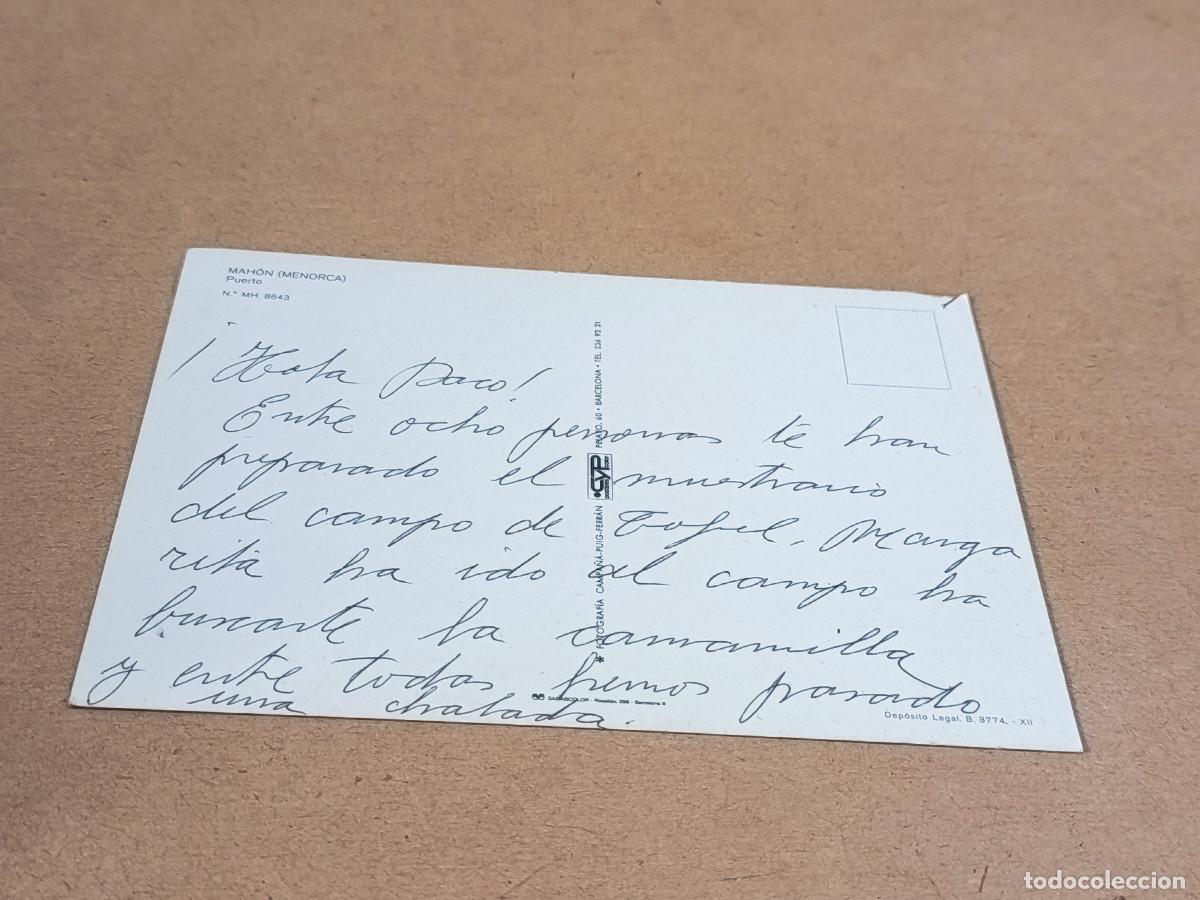 MAHÓN (MENORCA)
Puerto
N.º MH. 8643
¡Hola Paco!
Entre ocho personas te han
preparado el muestrario
del campo de Tofel, Marga
rita ha ido al campo ha
buscarte la camamilla
y entre todas hemos pasado
una chalada.
* FOTOGRAFÍA CAMPAÑÁ-PUIG-FERRÁN
CYP
60 • BARCELONA • TEL. 236 92 21
Depósito Legal. B. 8774. - XII
todocoleccion